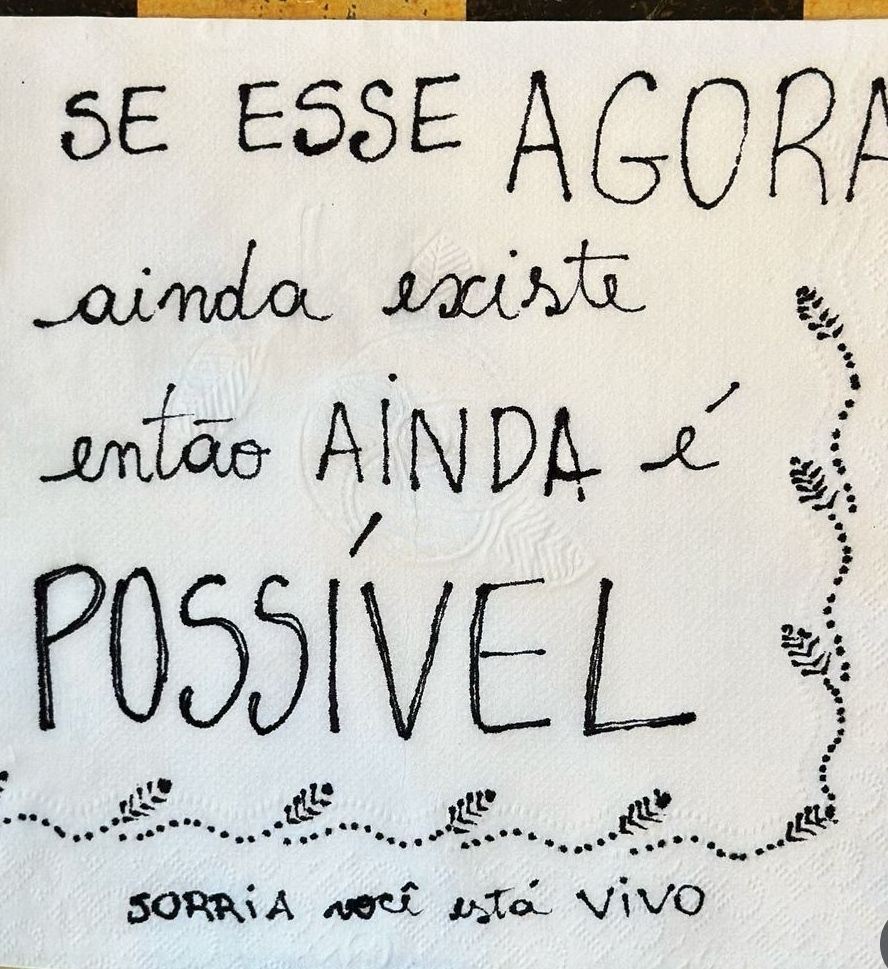 SE ESSE AGORA
ainda existe
então AINDA é
POSSÍVEL
SORRIA você está VIVO